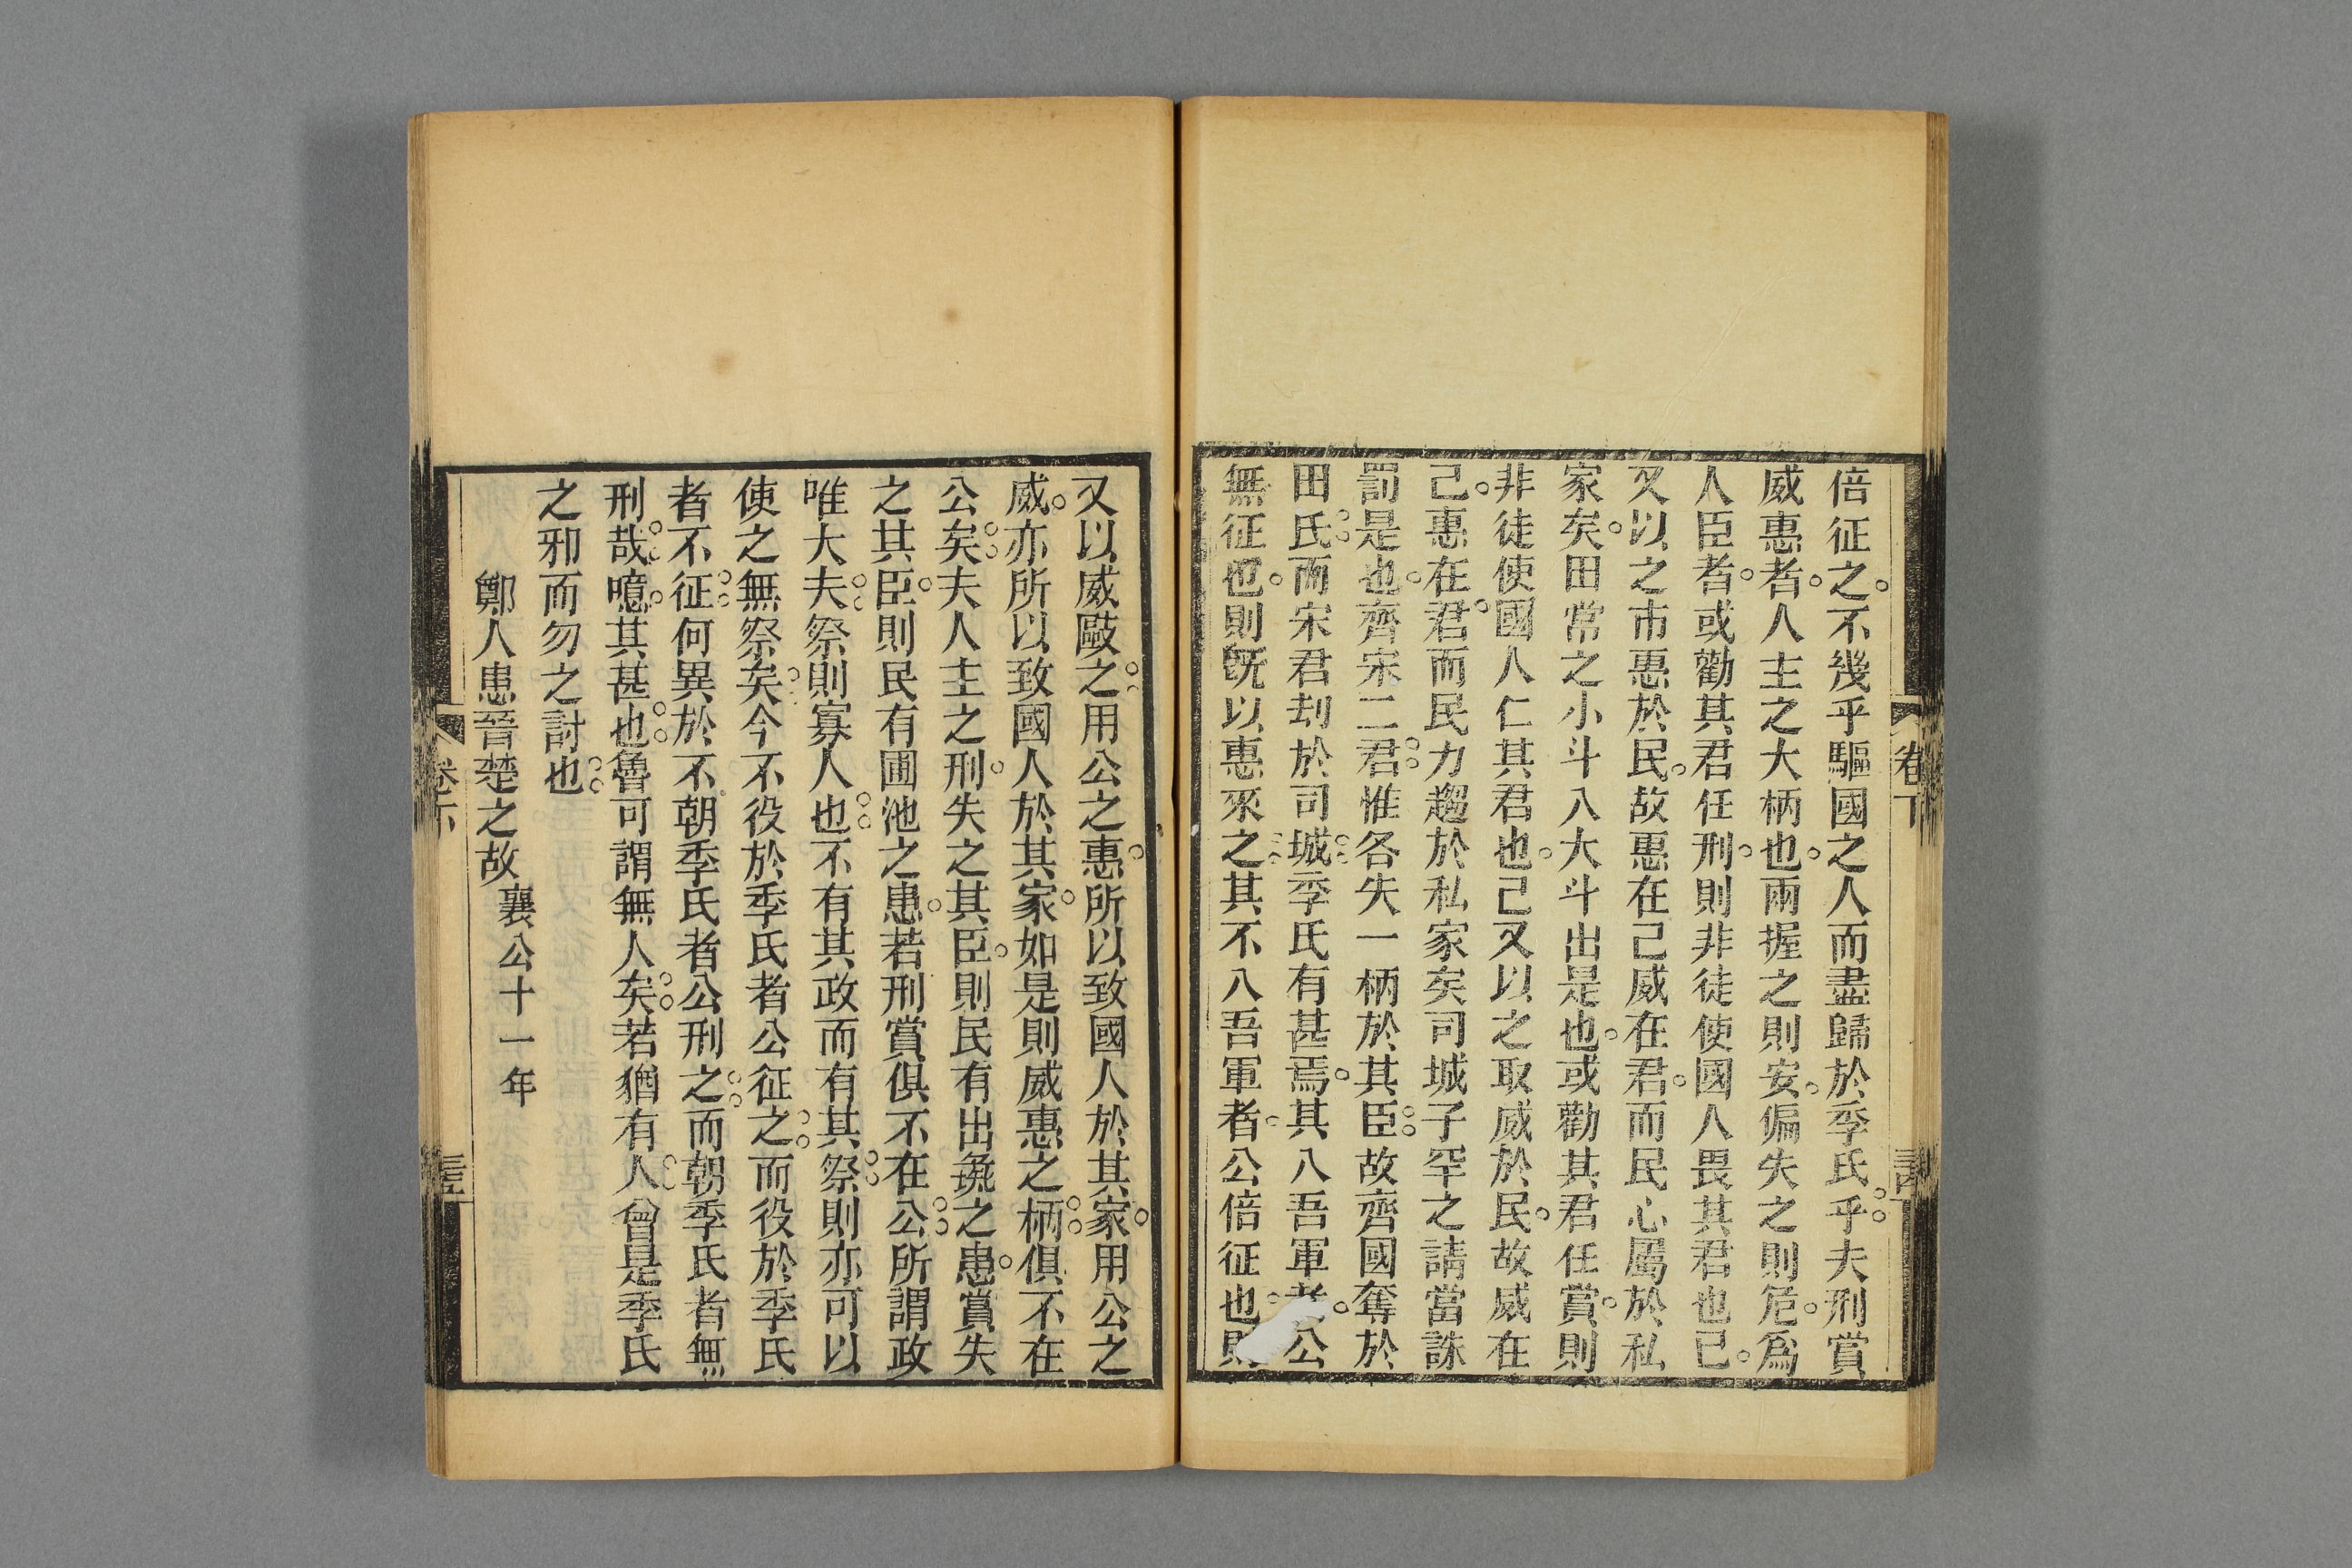 倍征之不幾乎驅國之人而盡歸於季氏乎夫刑賞
威惠者人主之大柄也兩握之則安偏失之則危爲
人臣者或勸其君任刑則非徒使國人畏其君也已
又以之市惠於民故惠在己威在君而民心屬於私
家矣田常之小斗入大斗出是也或勸其君任賞則
非徒使國人仁其君也己又以之取威於民故威在
己惠在君而民力趨於私家矣司城子罕之請當誅
罰是也齊宋二君惟各失一柄於其臣故齊國奪於
田氏而宋君刦於司城季氏有甚焉其入吾軍者公
無征也則旣以惠來之其不入吾軍者公倍征也則
又以威敺之用公之惠所以致國人於其家用公之
威亦所以致國人於其家如是則威惠之柄俱不在
公矣夫人主之刑失之其臣則民有出彘之患賞失
之其臣則民有圃池之患若刑賞俱不在公所謂政
唯大夫祭則寡人也不有其政而有其祭則亦可以
使之無祭矣今不役於季氏者公征之而役於季氏
者不征何異於不朝季氏者公刑之而朝季氏者無
刑哉噫其甚也魯可謂無人矣若猶有人曾是季氏
之邪而勿之討也
鄭人患晉楚之故 襄公十一年
卷下
卷下